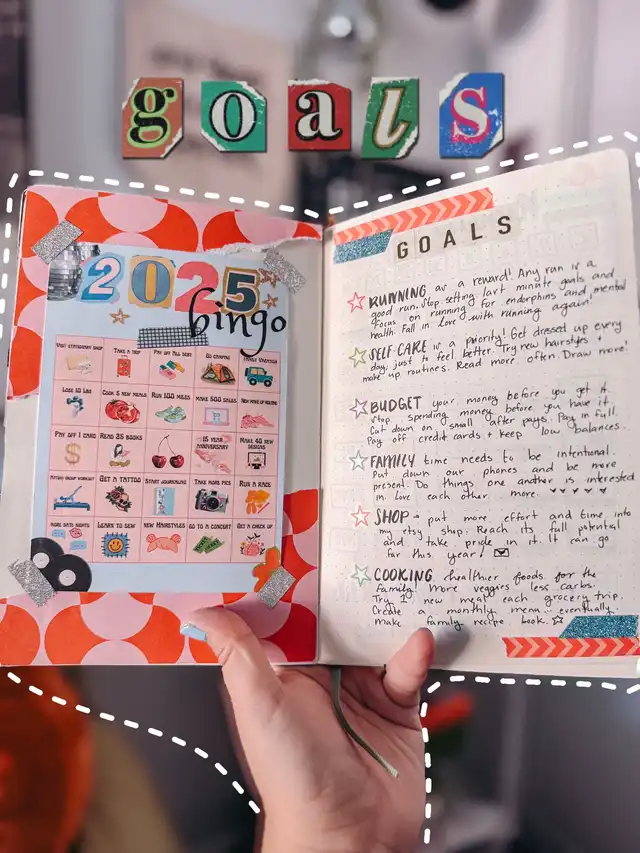 goals
2025
bingo
VISIT STATIONERY SHOP
TAKE A TRIP
PAY OFF ALL DEBT
GO CAMPING
FAMILY VACATION
LOSE 10 LBS
COOK 5 NEW MEALS
RUN 100 MILES
MAKE 500 SALES
NEW MAKE UP ROUTINE
PAY OFF 1 CARD
READ 25 BOOKS
15 YEAR ANNIVERSARY
MAKE 40 NEW DESIGNS
GET A TATTOO
START JOURNALING
TAKE MORE PICS
RUN A RACE
MORE DATE NIGHTS
LEARN TO SEW
NEW HAIRSTYLES
GO TO A CONCERT
GET A CHECK UP
GOALS
RUNNING as a reward! Any run is a
good run. Stop setting last minute goals and
focus on running for endorphins and mental
health. Fall in love with running again!
SELF-CARE is a priority! Get dressed up every
day, just to feel better. Try new hairstyles +
make up routines. Read more often. Draw more!
BUDGET your money before you get it.
Stop spending money before you have it.
Cut down on small after pays. Pay in full.
Pay off credit cards + keep low balances.
FAMILY time needs to be intentional.
Put down our phones and be more
present. Do things one another is interested
in. Love each other more.
SHOP - put more effort and time into
my etsy shop. Reach its full potential
and take pride in it. It can go
far this year!
COOKING healthier foods for the
family. More veggies less carbs.
Try 1 new meal each grocery trip.
Create a monthly menu + eventually
make family recipe book.